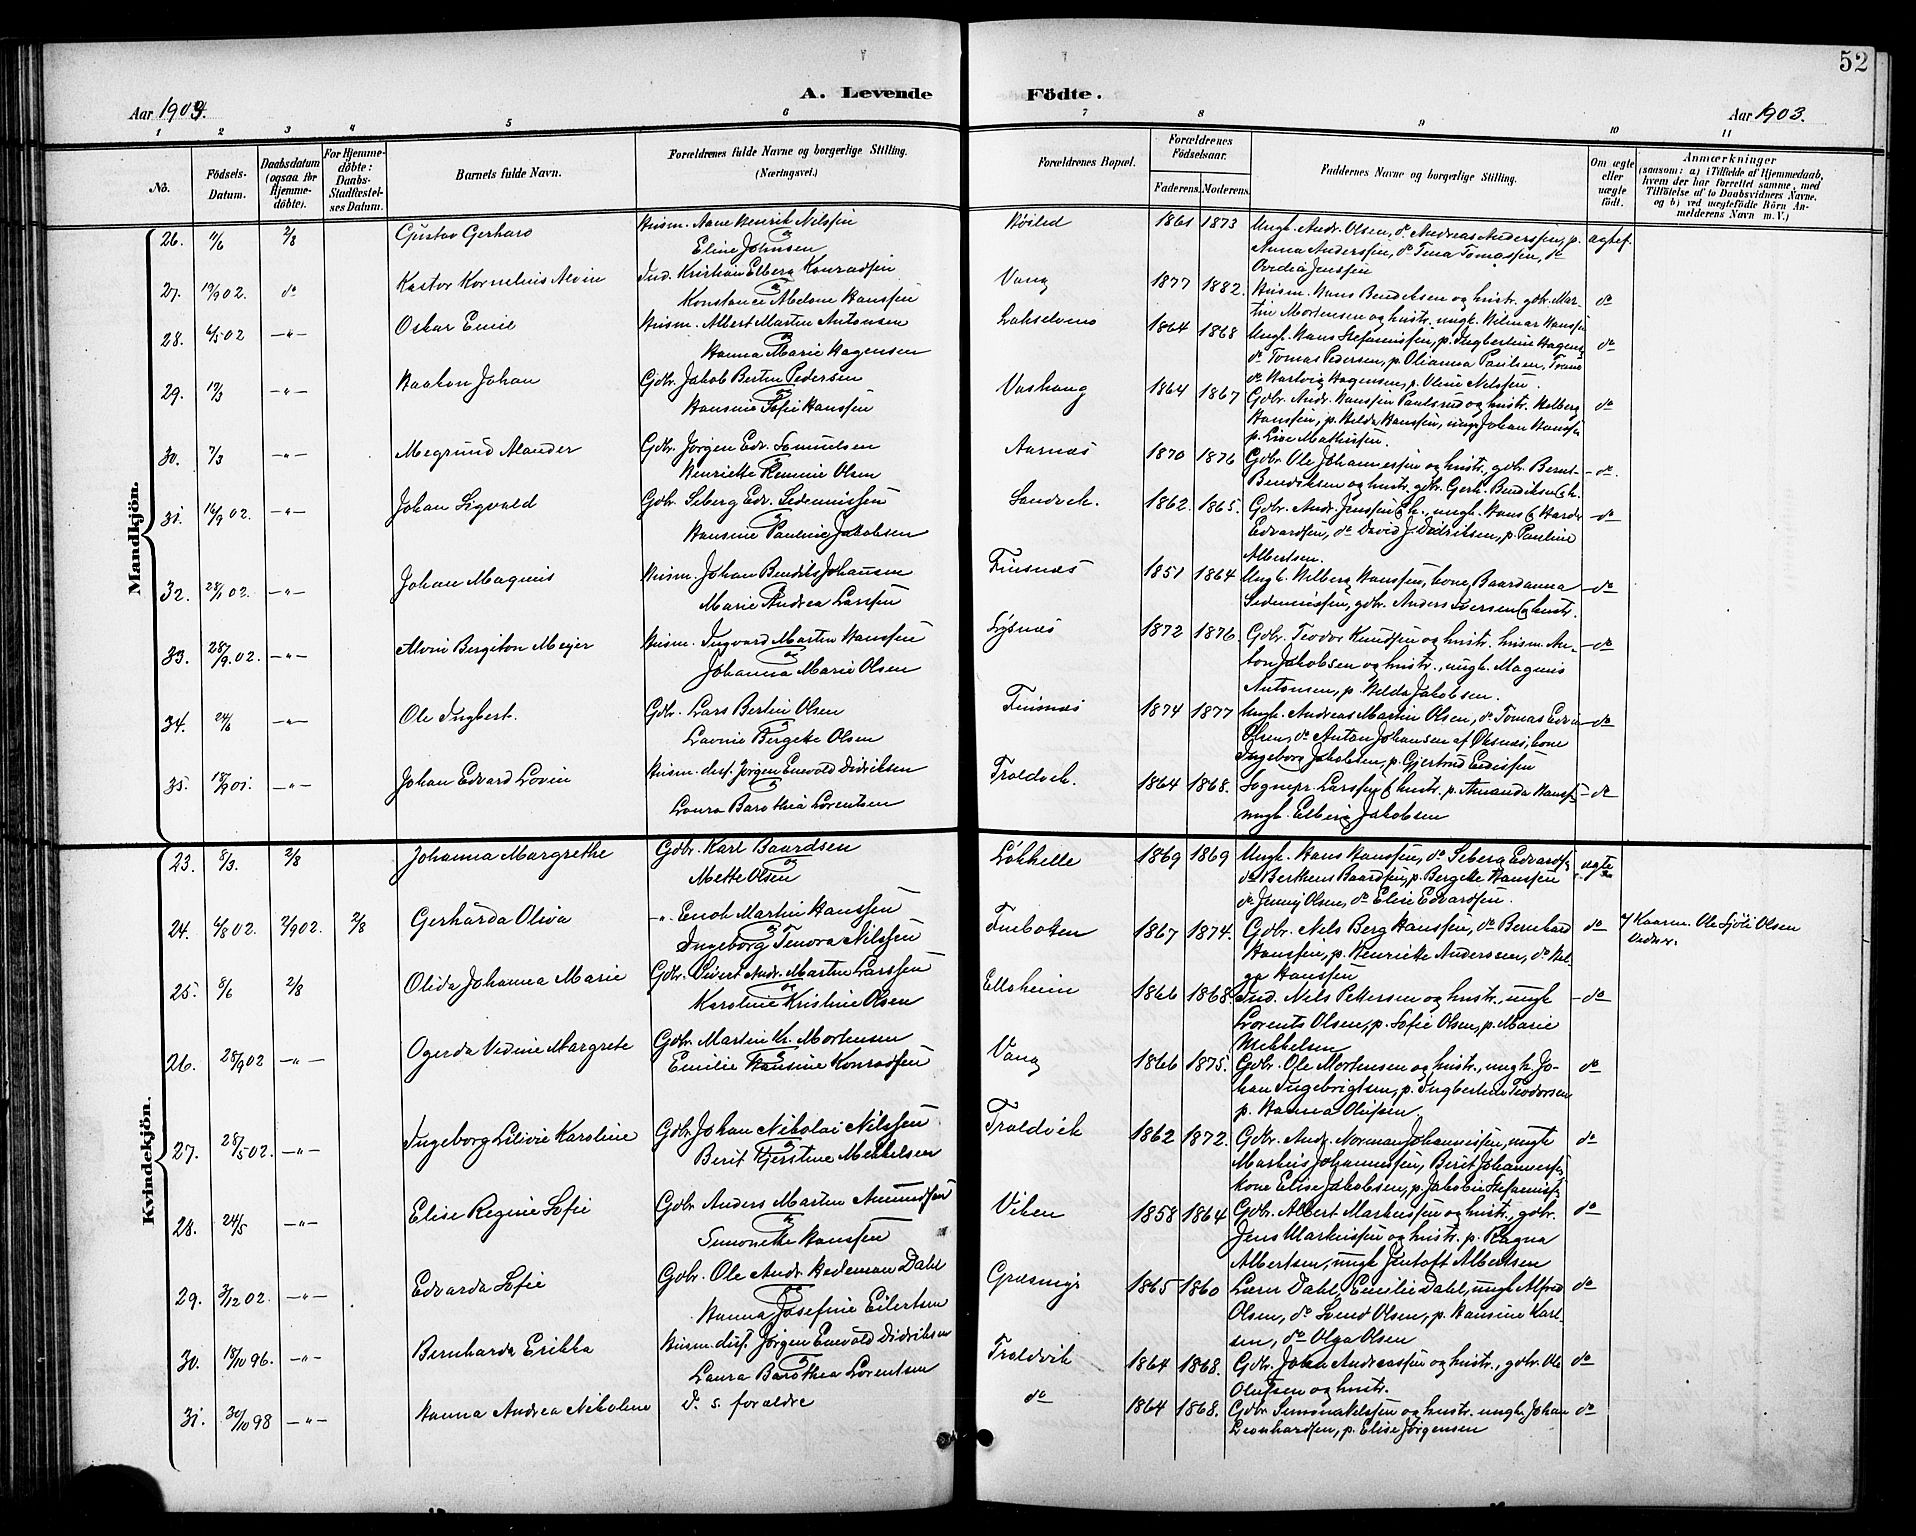 52
Aar 1903.
A. Levende
Födte.
Aar 1903.
1 2 3 4 5 6 7 8 9 10 11
No.
Födsels-
Datum.
Daabsdatum
(ogsaa for
Hjemme-
döbte).
For Hjemme-
döbte:
Daabs-
Stadfæstel-
ses Datum.
Barnets fulde Navn.
Forældrenes fulde Navne og borgerlige Stilling.
(Næringsvei.)
Forældrenes Bopæl.
Forældrenes
Födselsaar.
Faderens. Moderens.
Faddernes Navne og borgerlige Stilling.
Om ægte
eller
uægte
födt.
Anmærkninger
(saasom: a) i Tilfælde af Hjemmedaab,
hvem der har forrettet samme, med
Tilföielse af to Daabsvidners Navne,
og b) ved uægtefödte Börn An-
melderens Navn m. V.)
Mandkjön.
26. 2/8 Gustav Gerhard Husm. Aane Henrik Nilssen
og
Eline Johnsen
1861 1873 Ungk. Andr. Olsen, do Andreas Anderssen, p.
Anna Anderssen, do Tina Tomassen, do
Ovedia Jenssen
27. 19/9 02. do Kastor Kornelius Alvin Ind. Kristian Elberg Konradsen
og
Konstance Abelone Hanssen
Vang 1877 1882. Husm. Hans Bendiksen og hustr. gdbr. Mar-
tin Mortensen og hustr. ungk. Hilmar Hanssen do
28. 6/5 02 -"- Oskar Emil Husm. Albert Martin Antonsen
og
Hanna Marie Hagensen
1864 1868 Ungk. Hans Stefanussen, p. Ingbertine Hagens.
do Tomas Pedersen, p. Olianna Paulsen, do
do Hartvig Hagensen, p. Oline Nilssen.
29. 19/3 -"- Haakon Johan Gdbr. Jakob Bertin Pedersen
og
Hansine Sofie Hanssen
Voshaug 1864 1867 Gdbr. Andr. Hanssen Paulsrud og hustr. Helberg
Hanssen, p. Hilda Hanssen, ungk Johan Hanssen
p. Lise Mathissen. do
30. 7/3 -"- Megrund Alander Gdbr. Jörgen Edv. Samuelsen
og
Henriette Olsen
Aarnæs 1870 1876 Gdbr. Ole Johannessen og hustr., gdbr. Bernt
Bendiksen og hustr. gdbr. Gerh. Bendiksen & h. -do.
31. 16/9 02. -"- Johan Sigvald Gdbr. Seberg Edv. Sedeniussen
og
Hansine Pauline Jakobsen
Sandvik. 1862. 1865. Gdbr. Andr. Jenssen & h., ungk. Hans &
Edvardsen, do David J. Didriksen, p. Pauline
Albertsen. -do
32. 28/1 02. -"- Johan Magnus Husm. Johan Bendik Johansen
og
Marie Andrea Larssen
Finsnæs 1851 1864 Ungk. Hilberg Hanssen, kone Baardanna
Sedeniussen, gdbr. Anders Iversen & hustr. -do
33. 28/9. 02. -"- Alvin Bergiton Meyer Husm. Ingvard Martin Hanssen
og
Johanna Marie Olsen
Lysnæs 1872 1876 Gdbr. Teodor Knudsen og hustr. husm. An-
ton Jakobsen og hustr., ungk. Magnus
Antonsen, p. Hilda Jakobsen. -do
34. 24/6 -"- Ole Ingbert. Gdbr. Lars Bertin Olsen
og
Lavine Bergette Olsen
Finsnæs 1874 1877 Ungk. Andreas Martin Olsen, do Tomas Edv.
Olsen, do Anton Johansen af Öksnæs, kone
Ingeborg Jakobsen, p Gjertrud -do
35. 18/9 01. -"- Johan Edvard Lovin Husm. Jörgen Enevold Didriksen
og
Laura Barothea Lorentsen
Troldvik. 1864 1868. Sognepr. Larssen & hustr. p. Amanda Hanss.
ungk. Elberg Jakobsen -do
Kvindekjön.
23. 8/3. 2/8 Johanna Margrethe Gdbr. Karl Baardsen
og
Mette Olsen
1869 1869 Ungk. Hans Hanssen, do Seberg Edvards.
do Berthens Baardsen, p. Bergette Hanssen
do Jenny Olsen, do Elise Edvardsen. ægte
24. 6/8 02. 7/9 02. 2/8 Gerharda Oliva -"- Enok Martin Hanssen
og
Ingeborg Tenora Nilssen
Finbotn 1867 1874. Gdbr. Nels Berg Hanssen, do Bernhard
Hanssen, p. Henrikke Anderssen, do Hel-
ga Hanssen do Kaarm. Ole Olsen
25. 8/6 2/8 Olida Johanna Marie Gdbr. Sivert Andr. Martin Larssen
og
Karoline Kristine Olsen
1866 1868. Ind. Nels Pettersen og hustr., ungk
Lorents Olsen, p. Sofie Olsen, p. Marie
Mikkelsen -do-
26. 28/9 02 -"- Ogerda Vedine Margrete Gdbr. Martin Kr. Mortensen
og
Emilie Hansine Konradsen
Vang 1866 1875. Gdbr. Ole Mortensen og hustr., ungk. Jo-
han Ingebrigtsen, p. Ingbertine Teodorsen
p. Hanna Olufsen do
27. 28/5 02. -"- Ingeborg Lilivie Karoline Gdbr. Johan Nikolai Nilssen
og
Berit Kjerstine Mikkelsen
Troldvik 1862 1872. Gdbr. Andr. Norman Johannessen, ungk
Markus Johannessen, Berit Johannes.
kone Elise Jakobsen, p. Jakobie Stefanus. do
28. 24/5 -"- Elise Regine Sofie Gdbr. Anders Martin Amundsen
og
Simonette Hanssen
Viken 1858 1864 Gdbr. Albert Markussen og hustr., gdbr.
Jens Markussen og hustr. p. Ragna
Albertsen, ungk Jentoft Albertsen do
29. 3/12 02. -"- Edvarda Sofie Gdbr. Ole Andr. Hedeman Dahl
og
Hanna Josefine Eilertsen
Græsmyr 1865 1860 Lærer Dahl, Emilie Dahl, ungk Alfred
Olsen, do Svend Olsen, p. Hansine Karl-
sen, do Olga Olsen do
30. 18/10 96. -"- Bernharda Erikka Husm. Jörgen Enevold Didriksen
og
Laura Barothea Lorentsen
Troldvik 1864 1868. Gdbr. Johan Andreassen og hustr., gdbr. Ole
Olufsen og hustr. do
31. 30/10 98 -"- Hanna Andrea Nikoline D. s. forældre
do 1864 1868. Gdbr Simon Nilssen og hustr. ungk. Johan
Leonhardsen, p. Elise Jörgensen do